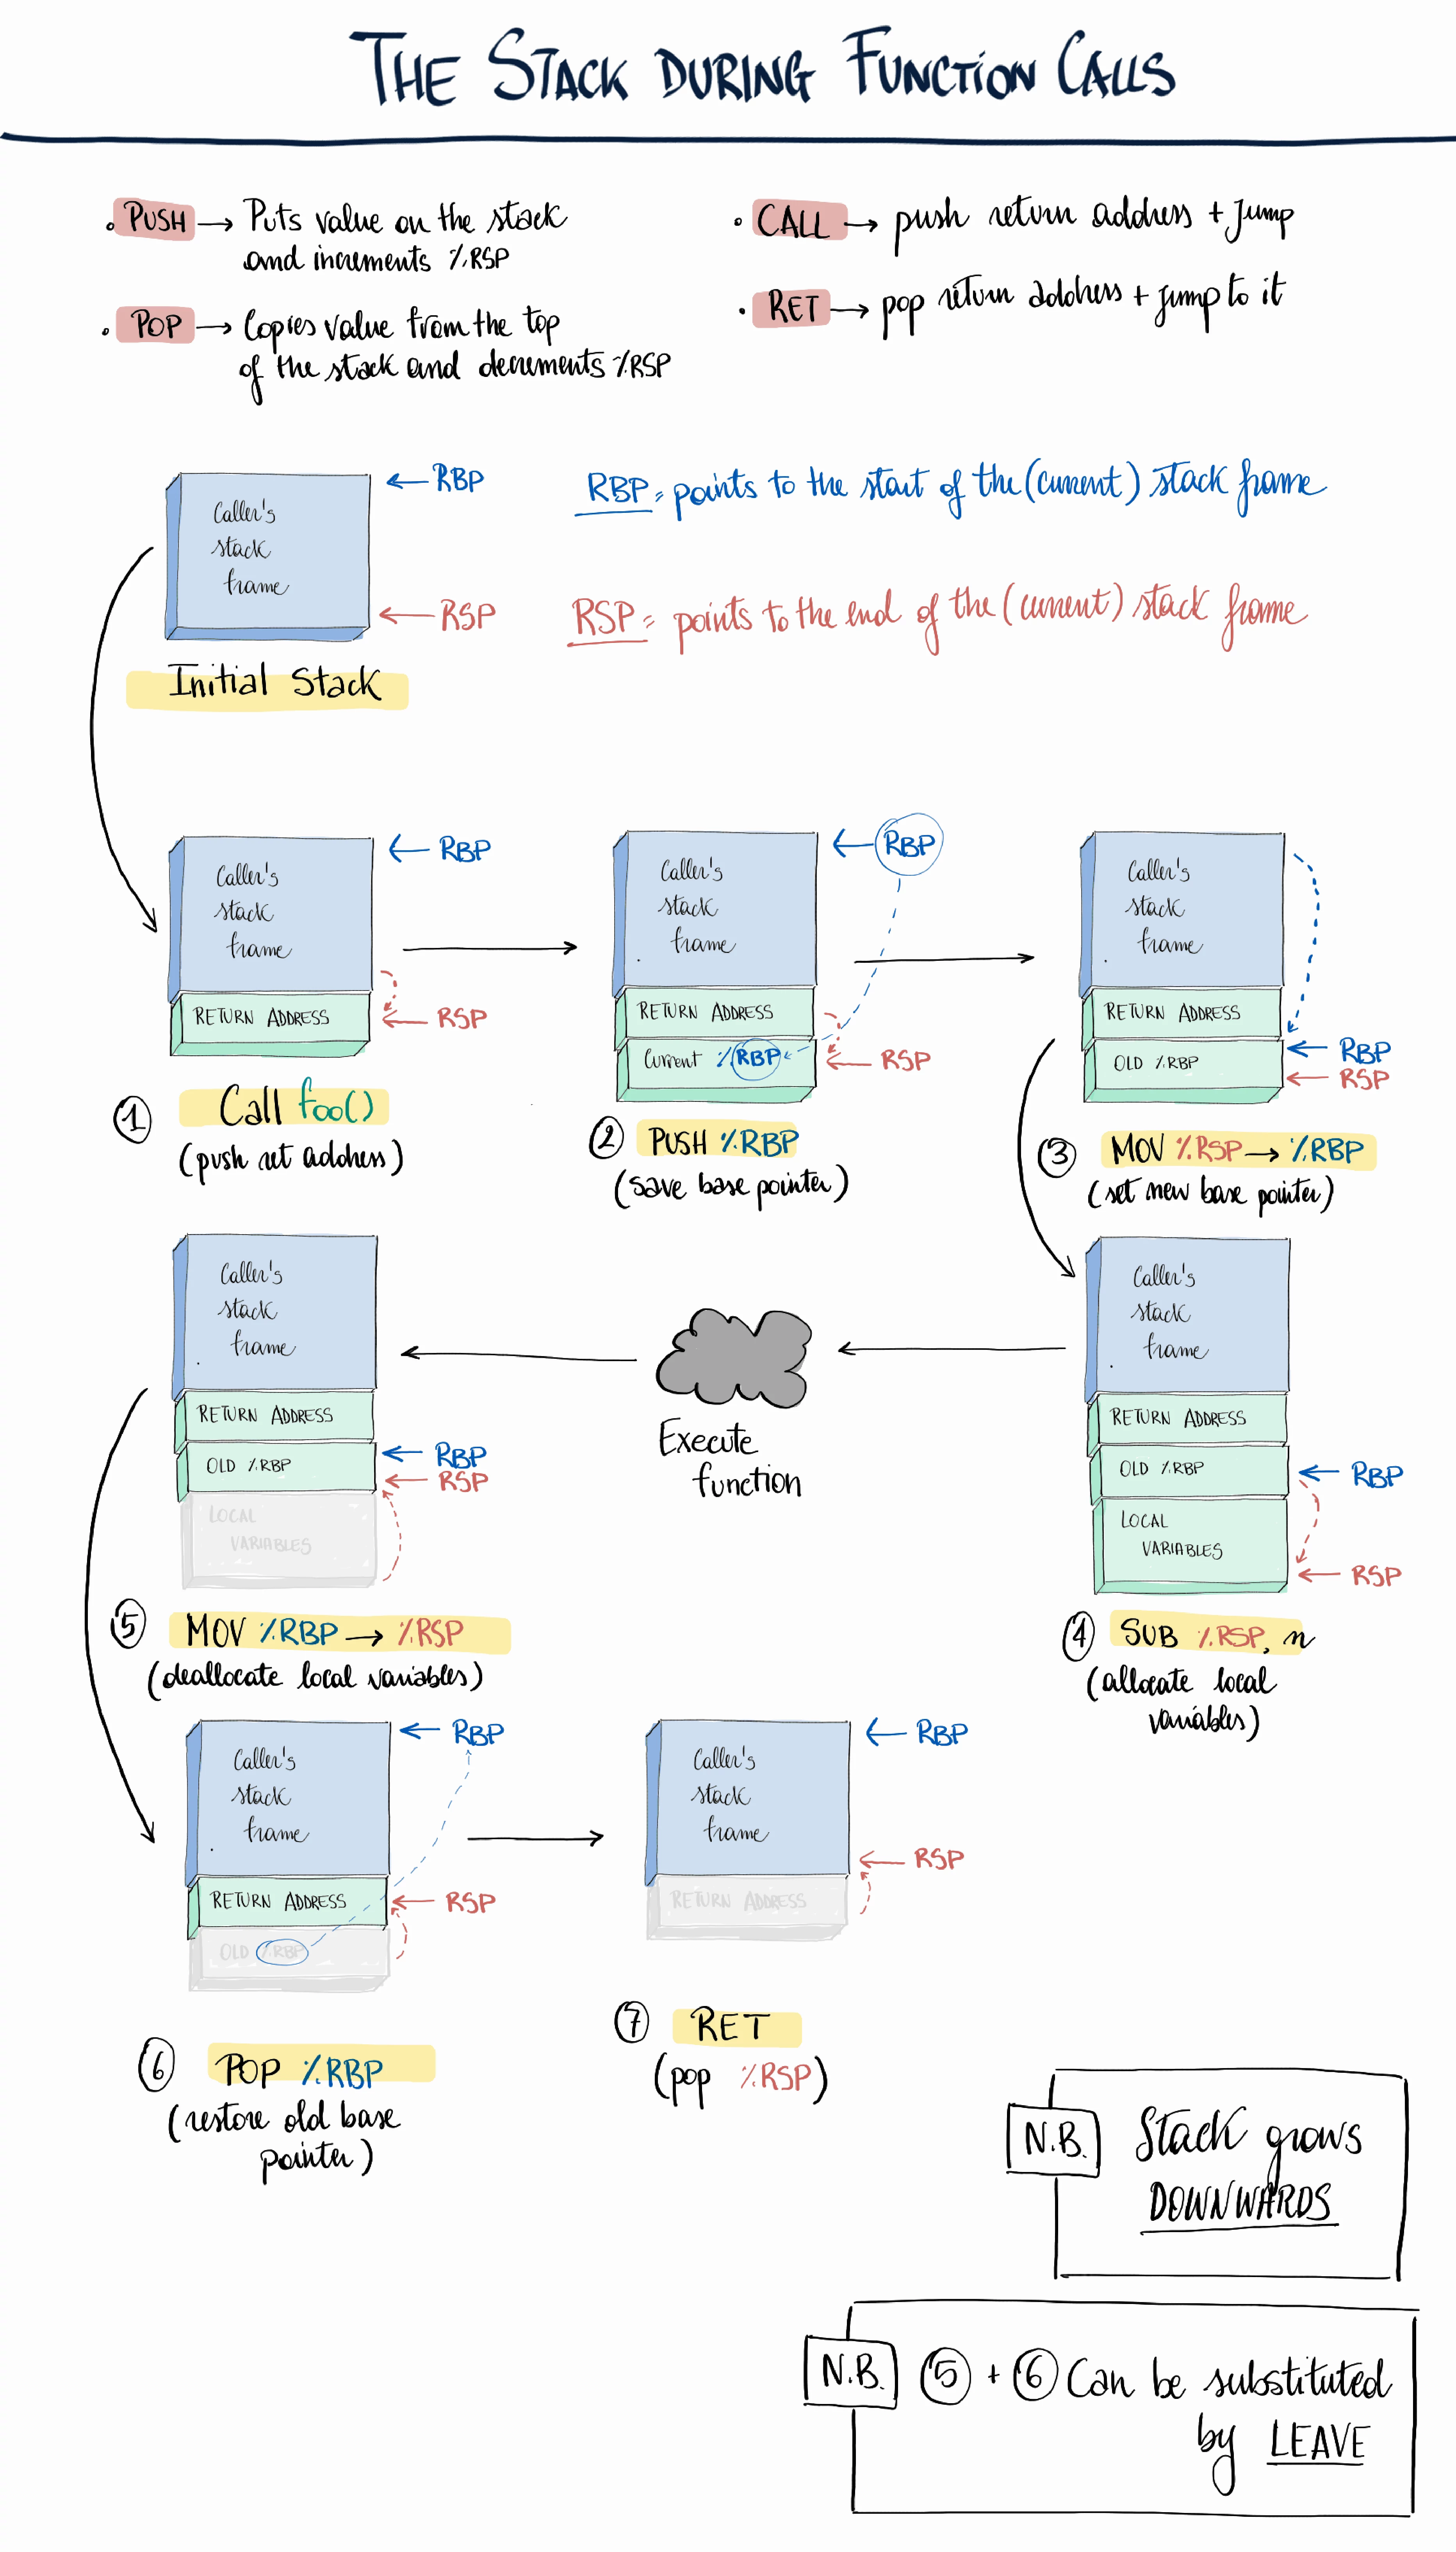 THE STACK DURING FUNCTION CALLS
• PUSH → Puts value on the stack
and increments %RSP
• POP → Copies value from the top
of the stack and decrements %RSP
• CALL → push return address + Jump
• RET → pop return address + jump to it
Caller's
stack
frame
← RBP
← RSP
Initial Stack
RBP = points to the start of the (current) stack frame
RSP = points to the end of the (current) stack frame
Caller's
stack
frame
RETURN ADDRESS
← RBP
← RSP
① Call foo()
(push ret address)
Caller's
stack
frame
RETURN ADDRESS
Current %RBP
← RBP
← RSP
② PUSH %RBP
(save base pointer)
Caller's
stack
frame
RETURN ADDRESS
OLD %RBP
← RBP
← RSP
③ MOV %RSP → %RBP
(set new base pointer)
Caller's
stack
frame
RETURN ADDRESS
OLD %RBP
LOCAL
VARIABLES
← RBP
← RSP
④ SUB %RSP, n
(allocate local
variables)
Execute
function
Caller's
stack
frame
RETURN ADDRESS
OLD %RBP
LOCAL
VARIABLES
← RBP
← RSP
⑤ MOV %RBP → %RSP
(deallocate local variables)
Caller's
stack
frame
RETURN ADDRESS
OLD %RBP
← RBP
← RSP
⑥ POP %RBP
(restore old base
pointer)
Caller's
stack
frame
RETURN ADDRESS
← RBP
← RSP
⑦ RET
(pop %RSP)
N.B. Stack grows
DOWNWARDS
N.B. ⑤ + ⑥ Can be substituted
by LEAVE